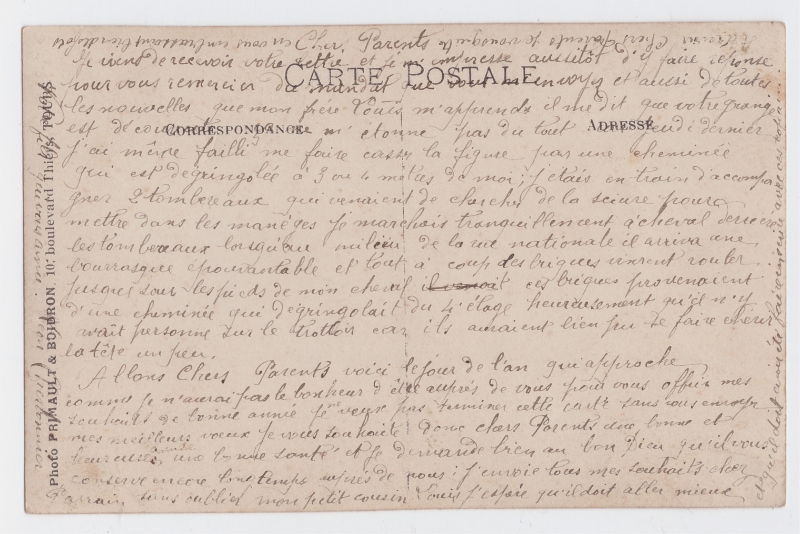 Cher Parents
Je viens de recevoir votre lettre et je m'empresse aussitot d'y faire reponse
CARTE POSTALE
pour vous remercier du mandat que vous m'envoyez et aussi de toutes
les nouvelles que mon frère Louis m'apprends il me dit que votre grange
CORRESPONDANCE
ADRESSE
est de m'etonne pas du tout jeudi dernier
j'ai même failli me faire casser la figure par une cheminée
qui est degringolée à 3 ou 4 metres de moi; j'etais en train d'accompa
gner 2 tombereaux qui venaient de chercher de la sciure pour
mettre dans les manéges je marchais tranquillement à cheval derriere
les tombereaux lorsqu'au milieu de la rue nationale il arriva une
bourrasque épouvantable et tout à coup des briques vinrent rouler
jusque sous les pieds de mon cheval il venait ces briques provenaient
d'une cheminée qui degringolait du 4e étage heureusement qu'il n'y
avait personne sur le trottoir car ils auraient bien pu se faire
la tête un peu.
Allons Chers Parents voici le jour de l'an qui approche
comme je n'aurai pas le bonheur d'être auprès de vous pour vous offrir mes
souhaits de bonne année je veux pas terminer cette carte sans vous envoyer
mes meilleurs vœux je vous souhaite donc chers Parents une bonne et
heureuse année une bonne santé et je demande bien au bon Dieu qu'il vous
conserve encore longtemps auprès de nous: j'envoie tous mes souhaits chez
Parrain sans oublier mon petit cousin Louis j'espère qu'il doit aller mieux
et qu'il doit
Chers Parents je vous quitte
en vous embrassant bien des fois
Photo PRIMAULT & BOIDRON, 10, boulevard Thiers, TOURS